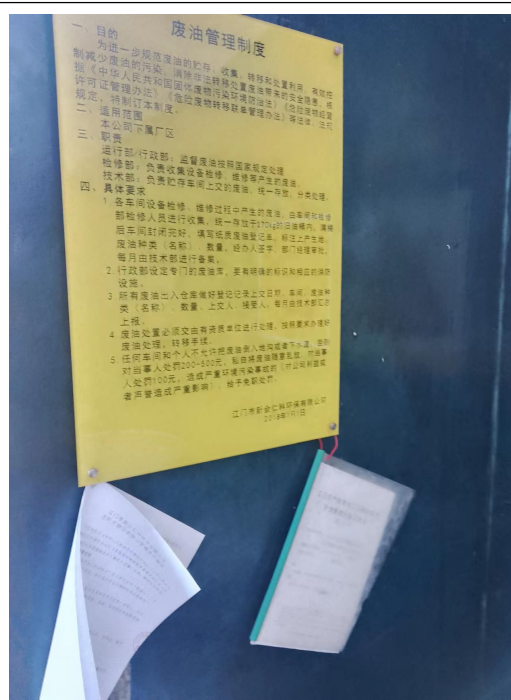 废油管理制度
一、目的
为进一步规范废油的贮存、收集、转移和处置利用，有效控
制减少废油的污染，消除非法转移处置废油带来的安全隐患，根
据《中华人民共和国固体废物污染环境防治法》《危险废物经营
许可证管理办法》《危险废物转移联单管理办法》等法律、法规
规定，特制订本制度。
二、适用范围
本公司下属厂区
三、职责
运行部/行政部：监督废油按照国家规定处理
检修部：负责收集设备检修、维修等产生的废油。
技术部：负责贮存车间上交的废油，统一存放，分类处理。
四、具体要求
1 各车间设备检修、维修过程中产生的废油，由车间和检修
部检修人员进行收集，统一存放于170kg的旧油桶内，满桶
后车间封闭完好，填写纸质废油登记单，标注上产生地、
废油种类（名称）、数量，经办人签字，部门经理审批。
每月由技术部进行备案。
2 行政部设定专门的废油库，要有明确的标识和相应的消防
设施。
3 所有废油出入仓库做好登记记录上交日期、车间、废油种
类（名称）、数量、上交人、接受人，每月由技术部汇总
上报。
4 废油处置必须交由有资质单位进行处理，按照要求办理好
废油处理、转移手续。
5 任何车间和个人不允许把废油倒入地沟或者下水道，否则
对当事人处罚200-500元，私自将废油随意乱放，对当事
人处罚100元，造成严重环境污染事故的（对公司利益或
者声誉造成严重影响），给予免职处罚。
江门市新会仁科环保有限公司
2018年1月1日